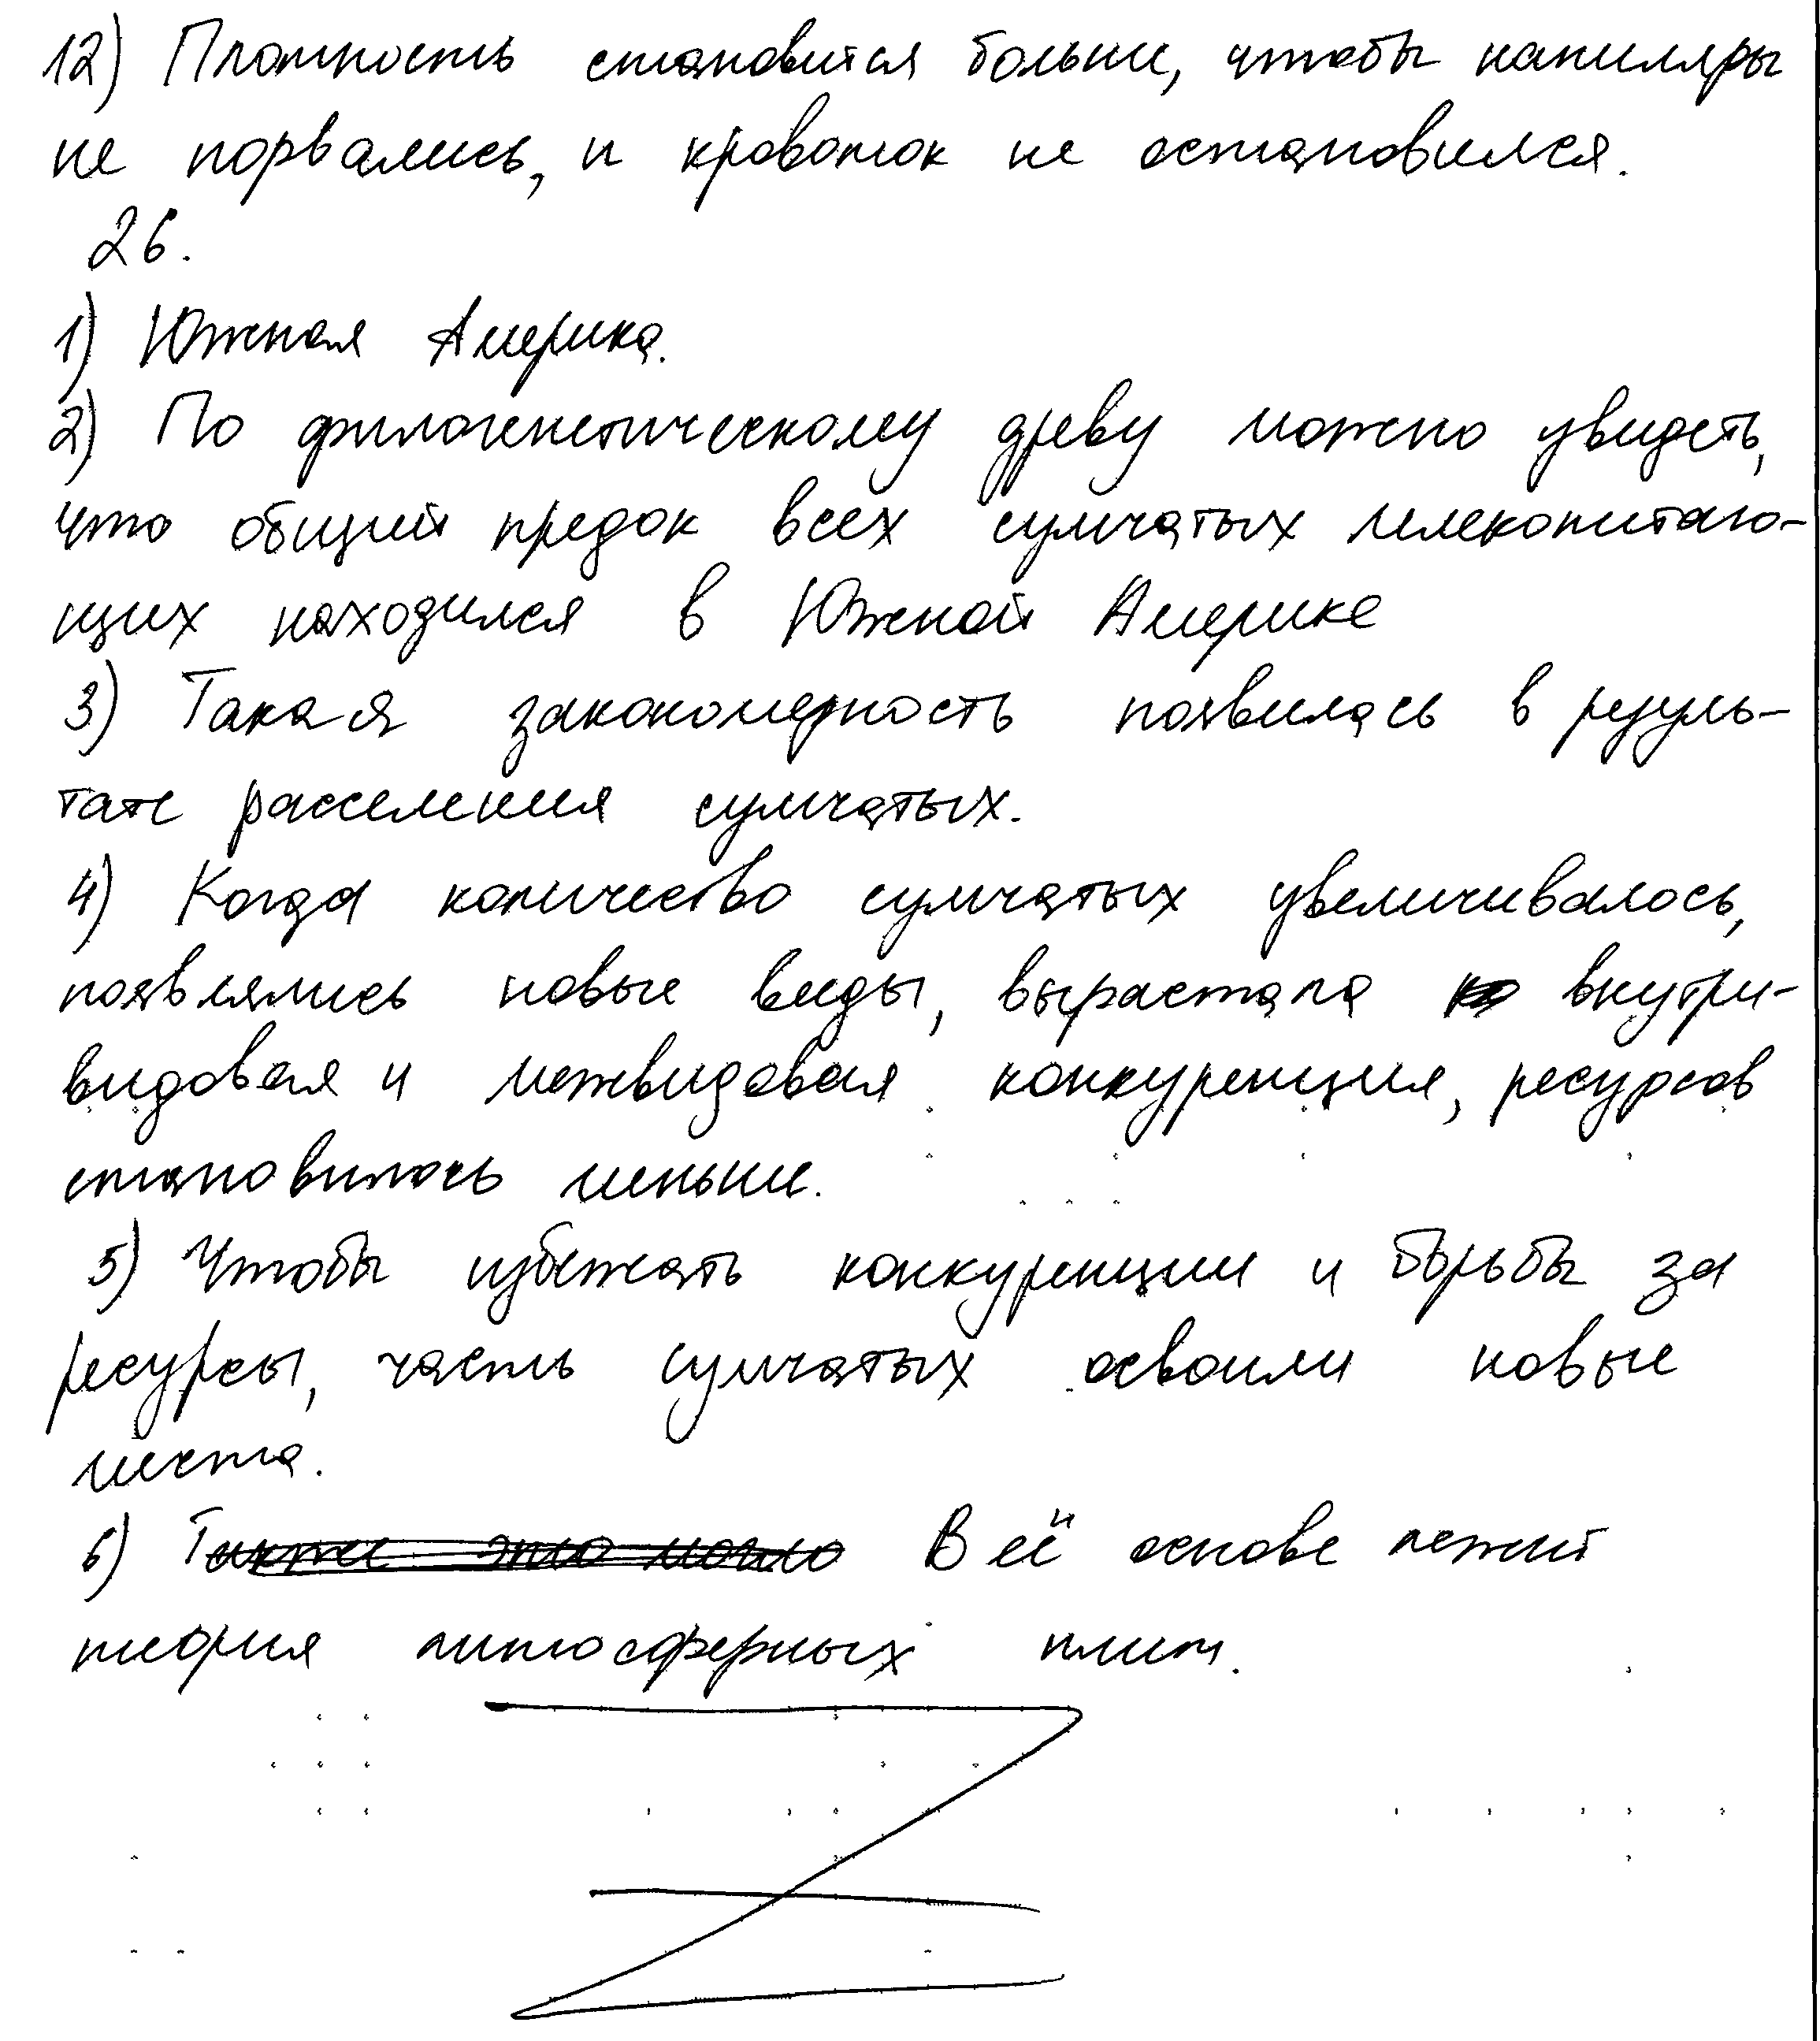 12) Плотность становится больше, чтобы капилляры
не порвались, и кровоток не остановился.
26.
1) Южная Америка.
2) По филогенетическому древу можно увидеть,
что общий предок всех сумчатых млекопитаю-
щих находился в Южной Америке
3) Такая закономерность появилась в резуль-
тате расселения сумчатых.
4) Когда количество сумчатых увеличивалось,
появлялись новые виды, вырастала внутри-
видовая и межвидовая конкуренция, ресурсов
становилось меньше.
5) Чтобы избежать конкуренции и борьбы за
ресурсы, часть сумчатых освоили новые
места.
6) Также это могло В её основе лежит
теория литосферных плит.